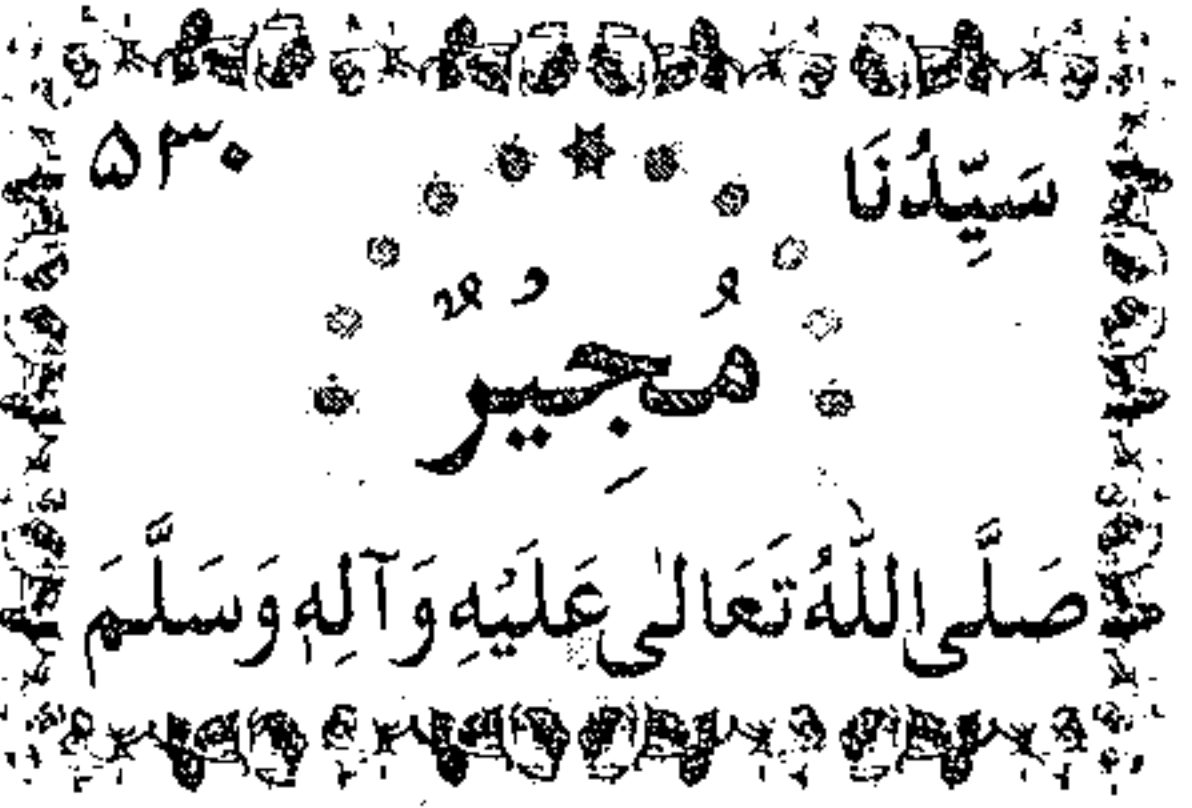 سَيِّدُنَا ۵۳۰
مُجِيْرٌ
صَلَّى اللّٰهُ تَعَالٰى عَلَيْهِ وَآلِهٖ وَسَلَّمَ